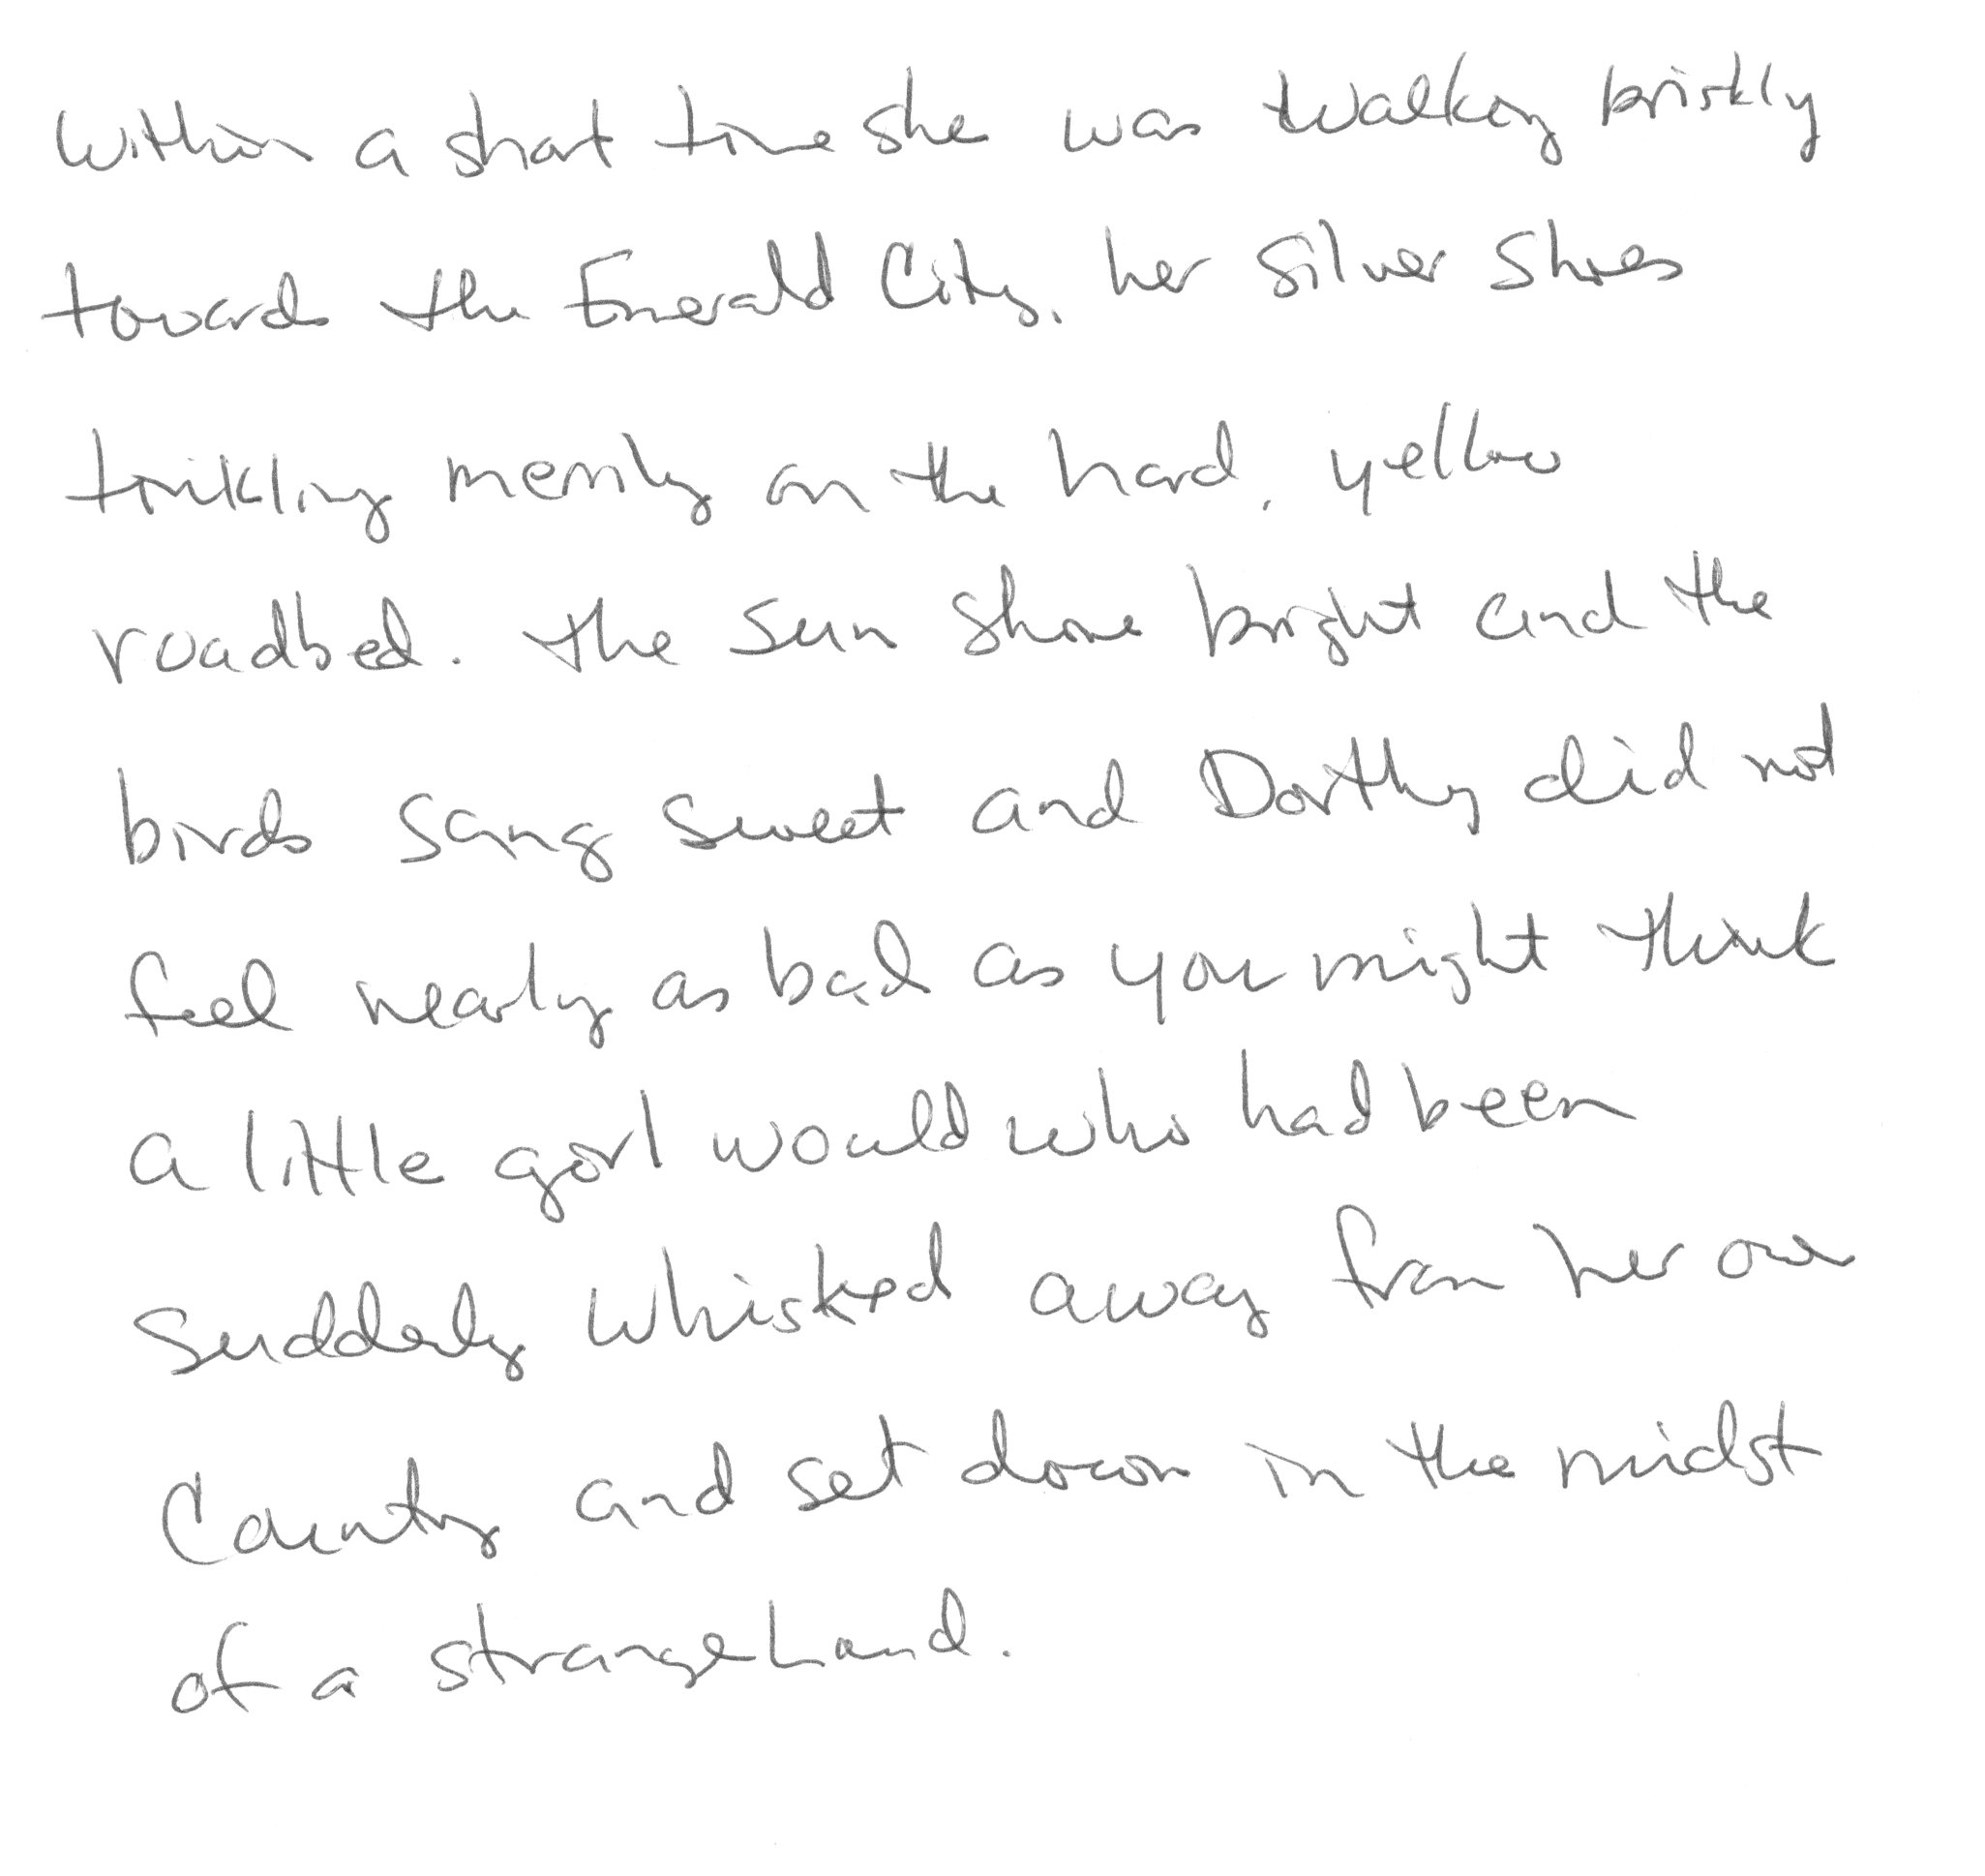 Within a short time she was walking briskly
towards the Emerald City, her silver shoes
tinkling merrily on the hard, yellow
roadbed. the sun shone bright and the
birds sang sweet and Dorthy did not
feel nearly as bad as you might think
a little girl would who had been
suddenly whisked away from her own
Country and set down in the midst
of a strange land.